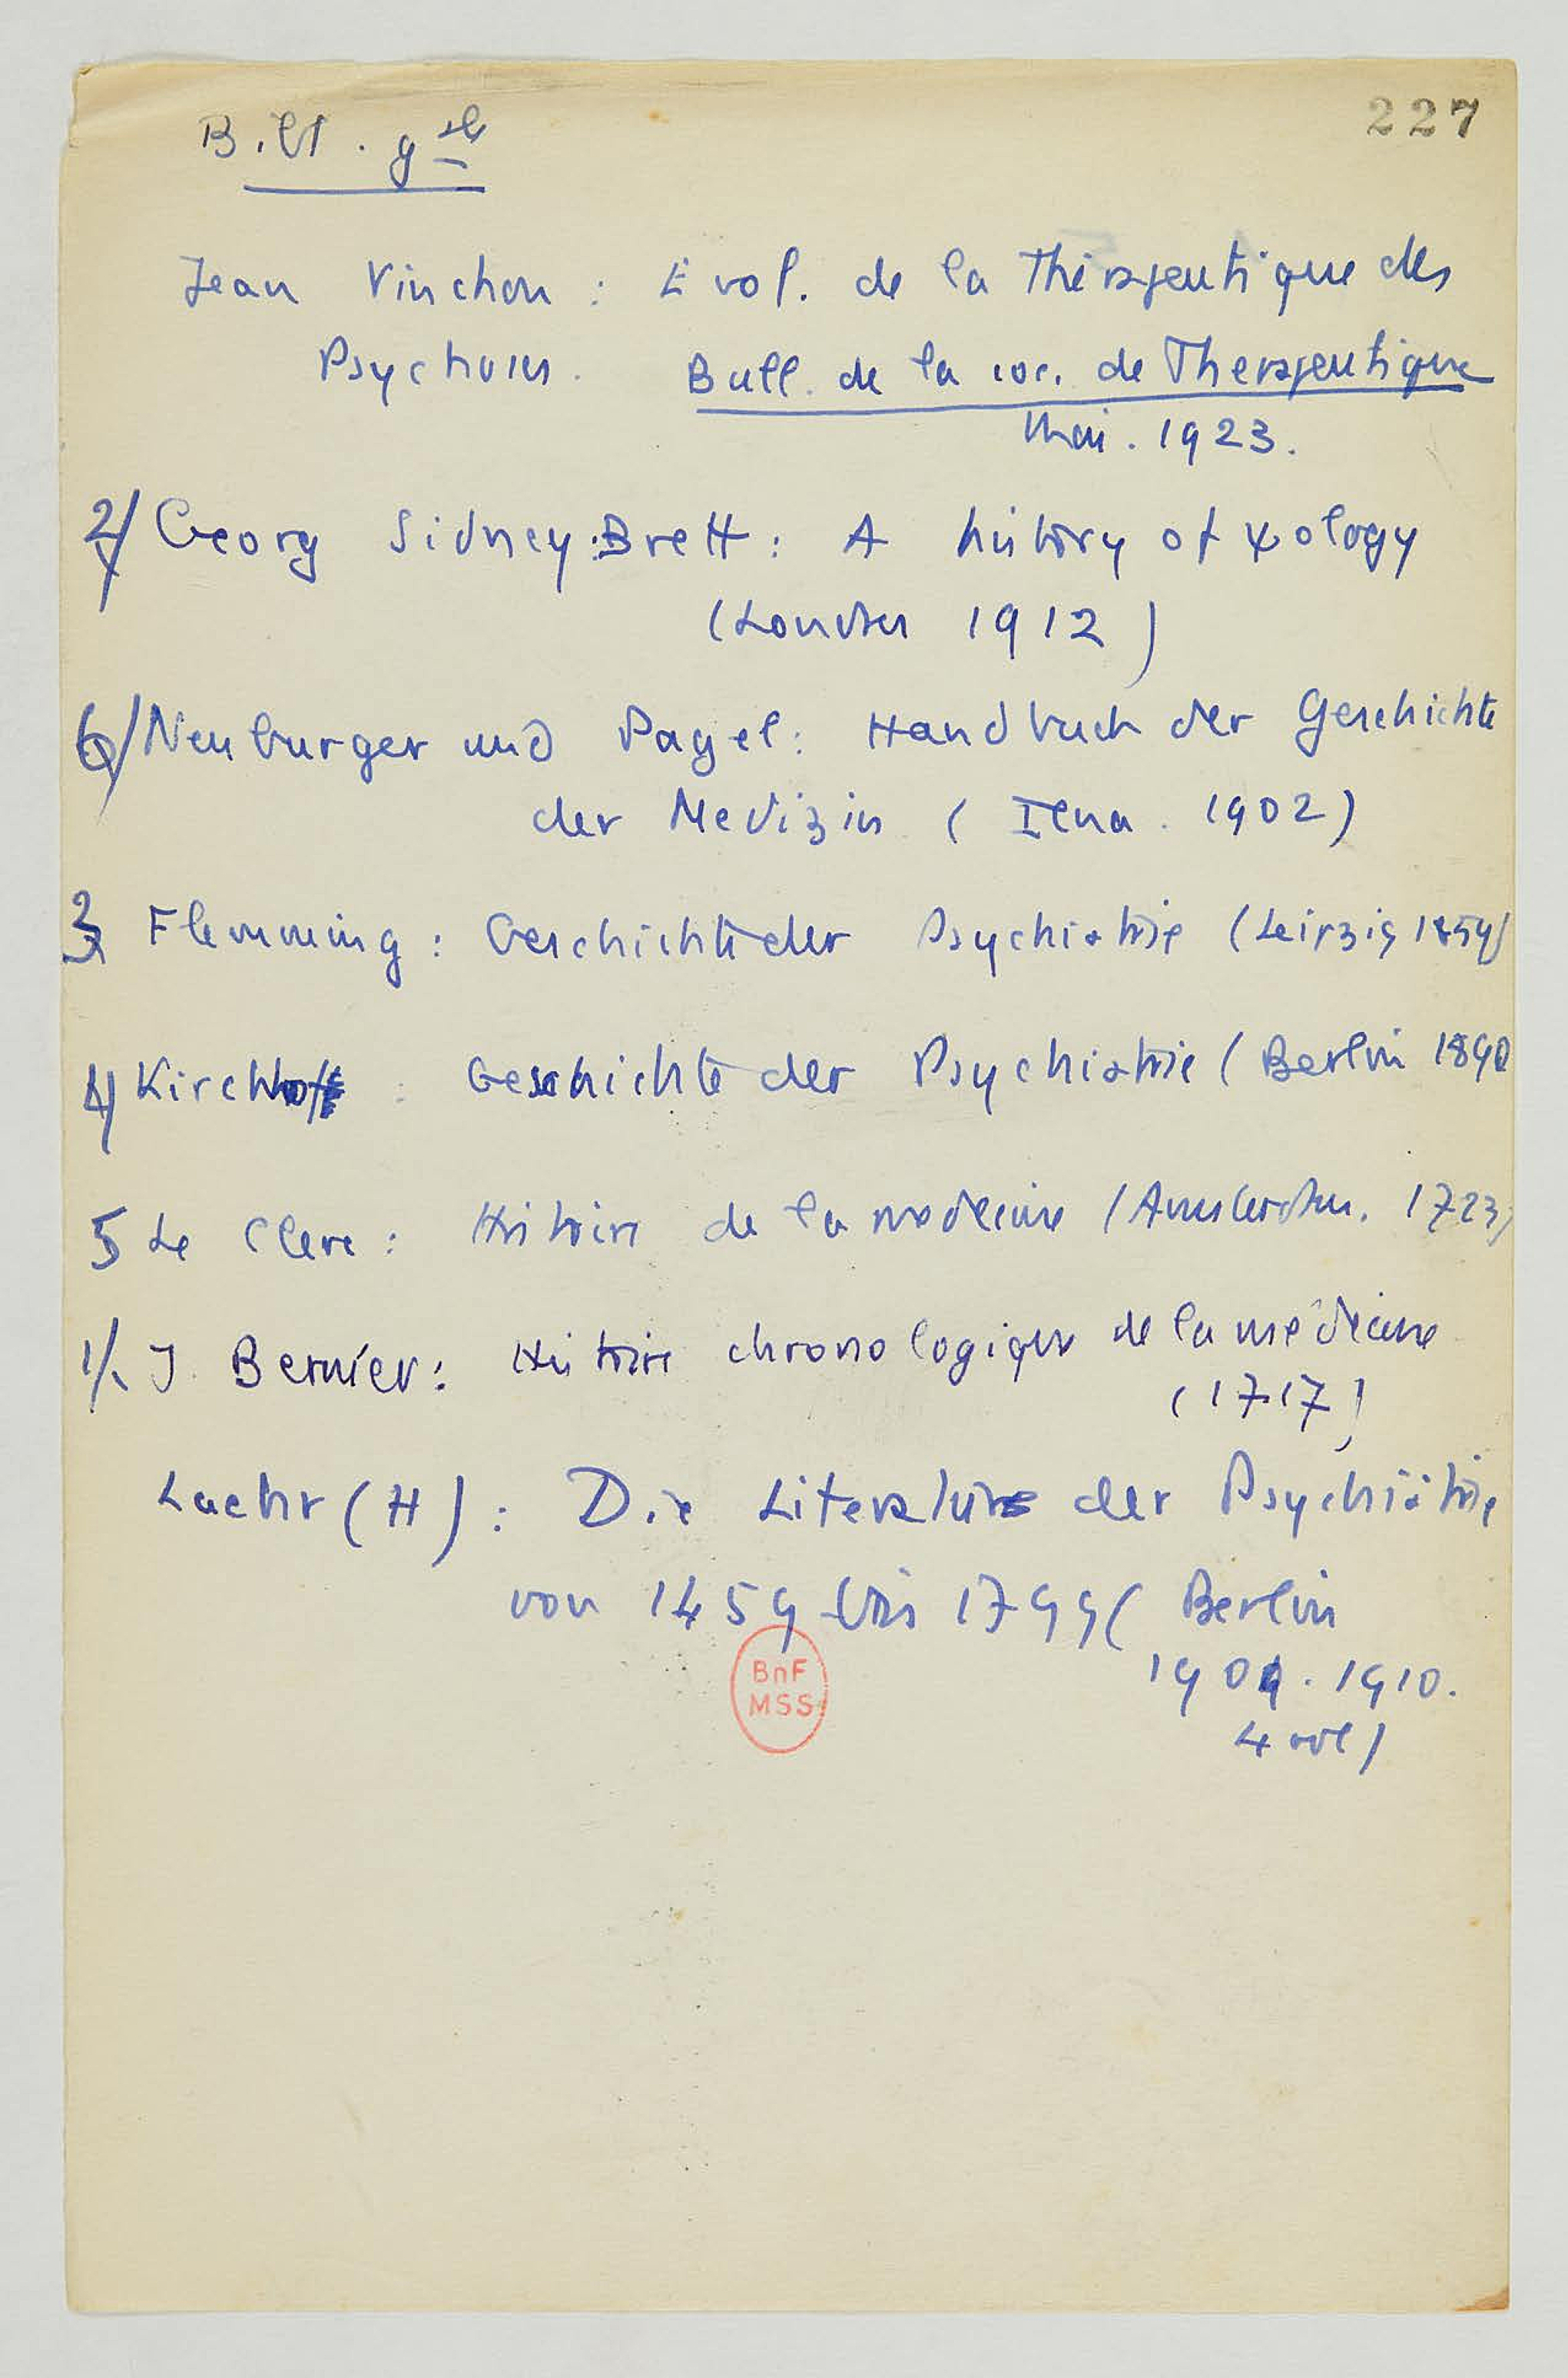 227
Bibl. gale
Jean Vinchon : Evol. de la Thérapeutique des
Psychoses. Bull. de la soc. de Therapeutique
Mai. 1923.
2/ Georg Sidney Brett : A history of ψology
(Londres 1912)
6/ Neuburger und Pagel : Handbuch der Geschichte
der Medizin (Iena. 1902)
3 Flemming : Geschichte der Psychiatrie (Leipzig 1859)
4/ Kirchhoff : Geschichte der Psychiatrie (Berlin 1890
5 Le Clerc : Histoire de la medecine (Amsterdam. 1723)
1/. J. Bernier : Histoire chronologique de la médecine
(1717)
Laehr (H) : Die Literatur der Psychiatrie
von 1459 bis 1799 ( Berlin
1900. 1910.
4 vol)
BnF
MSS